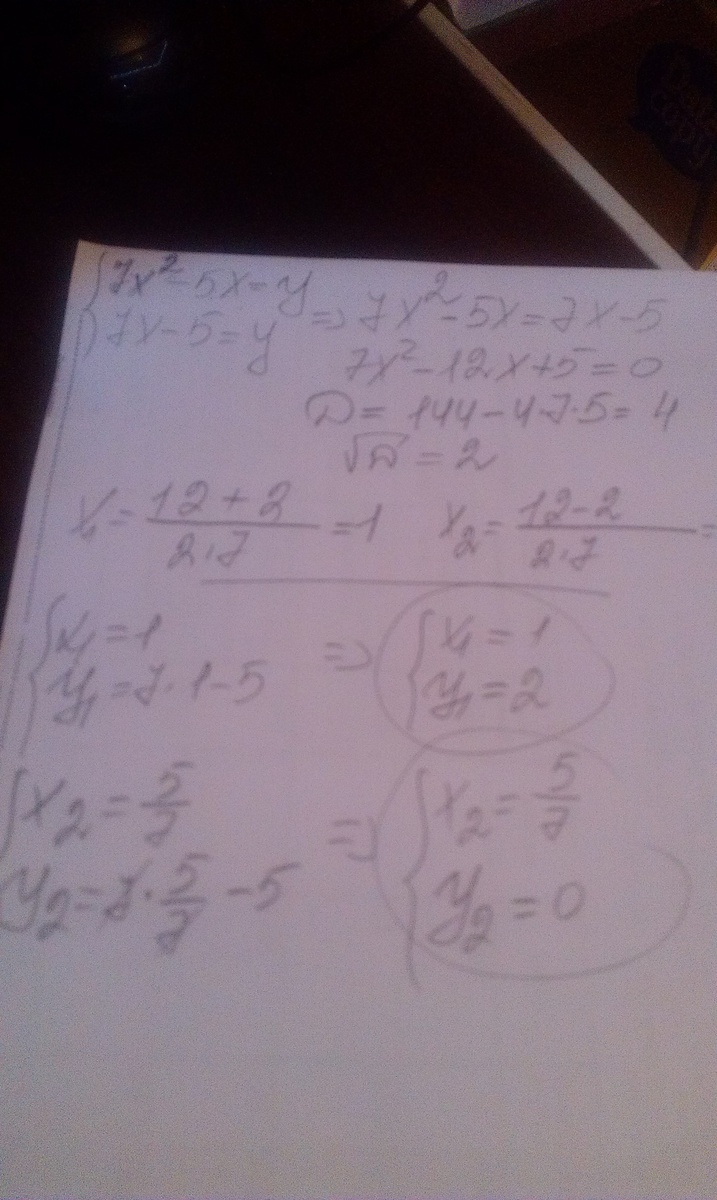 {7x² - 5x = y
{7x - 5 = y => 7x² - 5x = 7x - 5
7x² - 12x + 5 = 0
D = 144 - 4·7·5 = 4
√D = 2
x₁ = (12 + 2)/(2·7) = 1 x₂ = (12 - 2)/(2·7) =
{x₁ = 1
{y₁ = 7·1 - 5 => {x₁ = 1
{y₁ = 2
{x₂ = 5/7
{y₂ = 7·5/7 - 5 => {x₂ = 5/7
{y₂ = 0